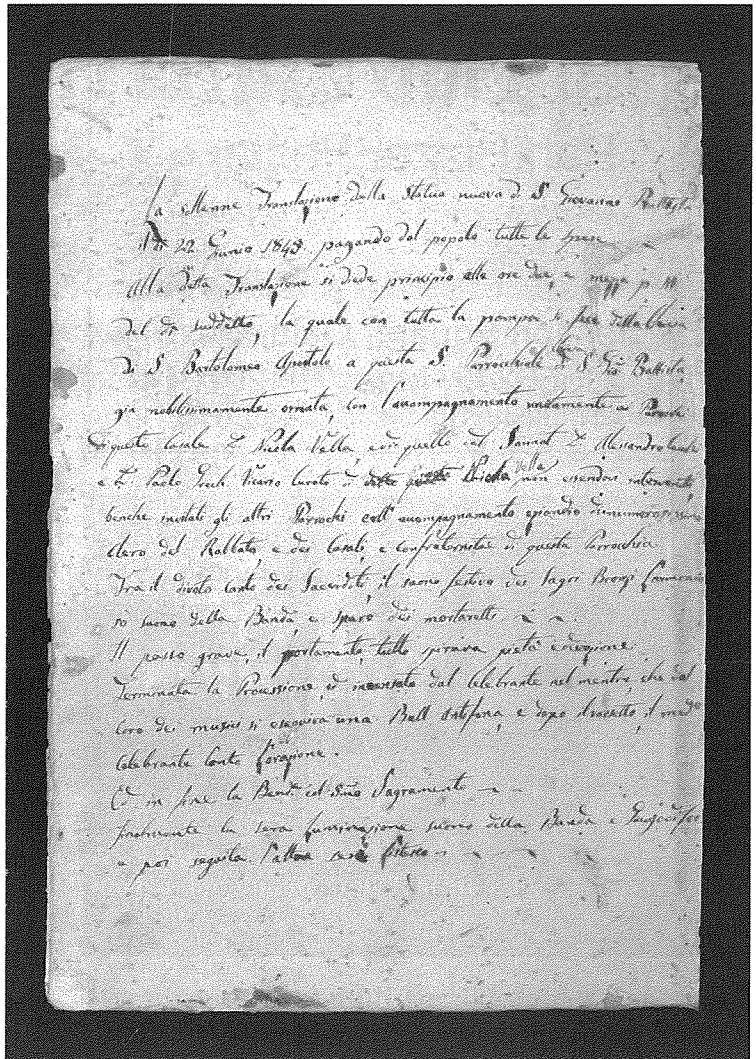 La sollenne Translazione della Statua nuova di S. Giovanno Battista
il di 22 Giunio 1845 pagando dal popolo tutte le spese
Alla detta Translazione si diede principio alle ore due, e mezza p. m
del di suddetto, la quale con tutta la pompa si fece dalla Chiesa
di S. Bartolomeo Apostolo a questa S. Parrocchiale di S. Gio. Battista,
gia nobilissimamente ornata, con l'accompagnamento unitamente a Parroco
di questo Casale D. Nicola Vella, e di quello del Sannat D. Alessandro
e D. Paolo Grech Vicario Curato di Vella, non essendosi intervenuti
benche invitati gli altri Parrochi coll'accompagnamento di numerosissimo
clero del Rabbato, e dei Casali, e confraternitae di questa Parrocchia
Tra il divoto canto dei Sacerdoti, il suono festivo dei Sagri Bronzi
so suono della Banda, e sparo dei mortaretti
Il passo grave, il portamento, tutto spirava pietà e divozione
Terminata la Processione, ed incensata dal Celebrante nel mentre, che dal
Coro dei musici si eseguiva una Bell'antifona, e dopo il versetto, il med.o
Celebrante Canto l'orazione.
Ed in fine la Bend.e col Smo Sagramento
finalmente la sera suono della Banda e
e poi seguita l'altra sera